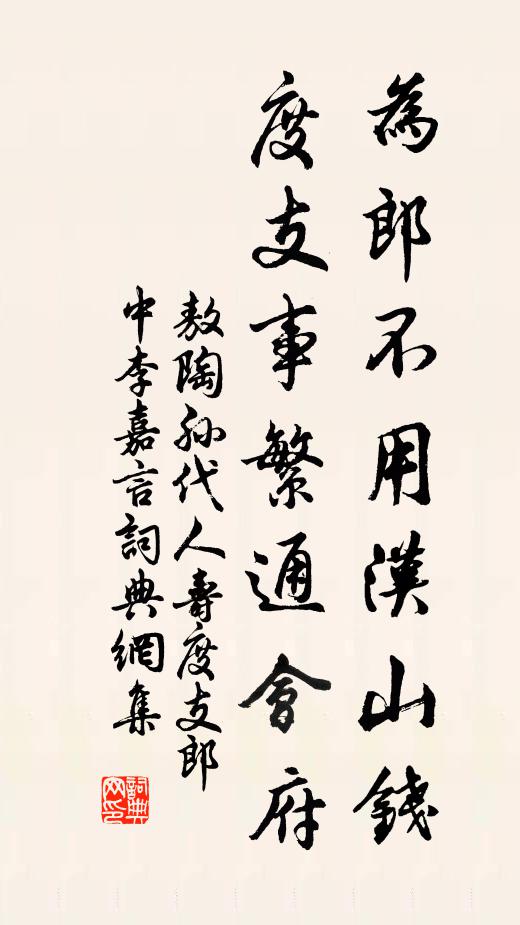 為郎不用漢山錢
度支事繁通會府
敖陶孙代人壽度支郎
中李嘉言詞典網集
詞典網印